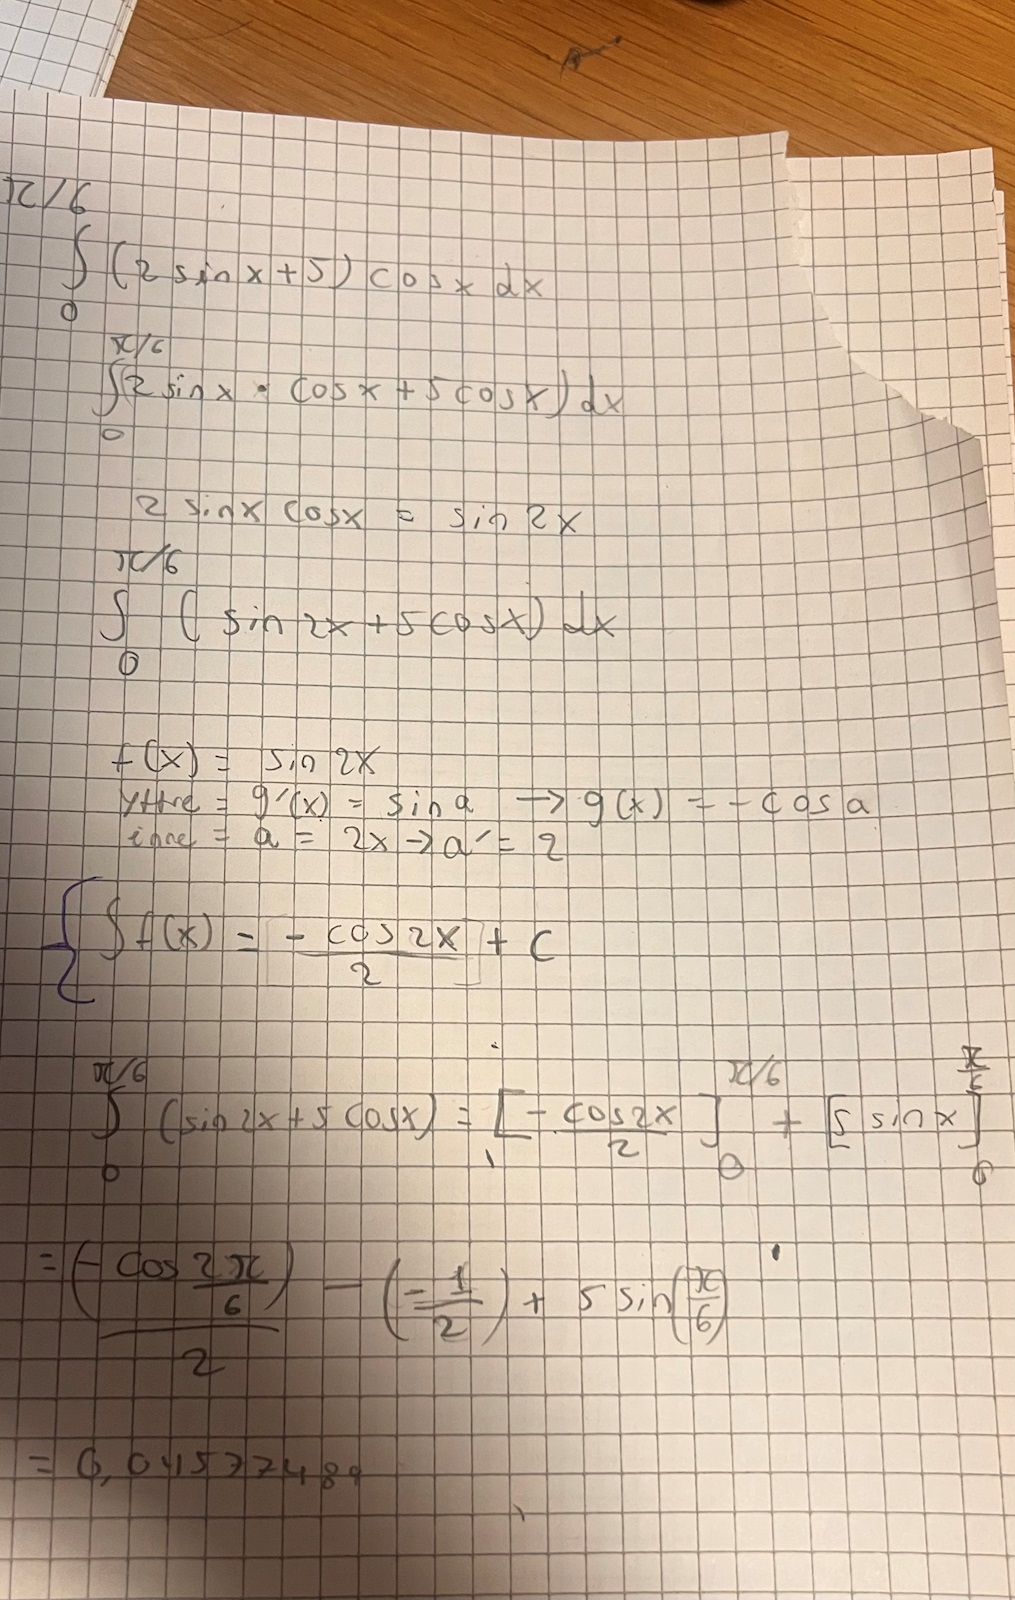 π/6
∫ (2 sin x + 5) cos x dx
0
π/6
∫(2 sin x · cos x + 5 cos x) dx
0
2 sin x cos x = sin 2x
π/6
∫ ( sin 2x + 5 cos x) dx
0
f(x) = sin 2x
yttre = g'(x) = sin a → g(x) = - cos a
inre = a = 2x → a' = 2
∫ f(x) = - cos 2x / 2 + C
π/6
∫ (sin 2x + 5 cos x) = [- cos 2x / 2 ]₀^π/6 + [5 sin x]₀^π/6
0
= (- cos 2π/6) / 2 - (- 1/2) + 5 sin(π/6)